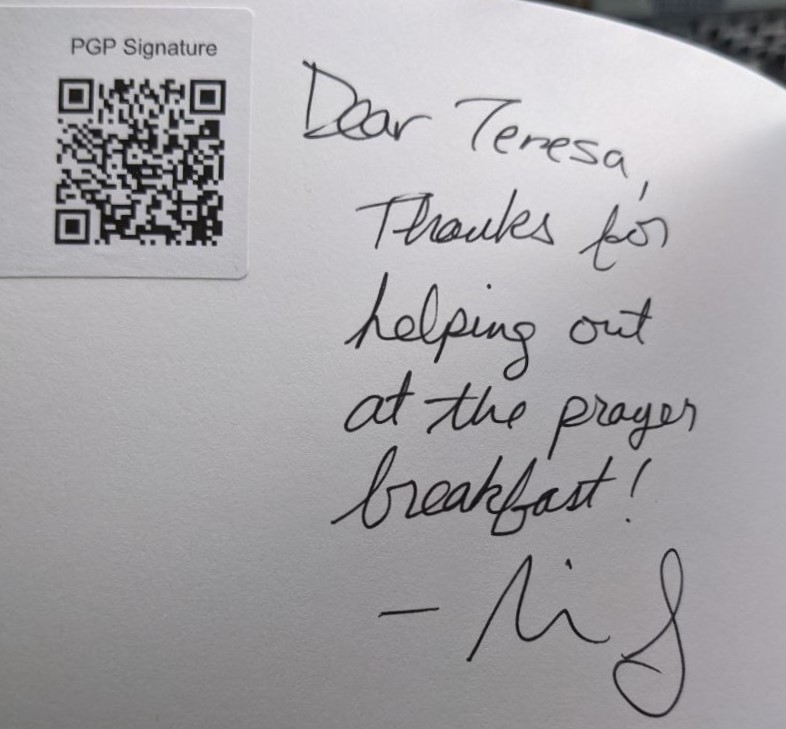 PGP Signature
Dear Teresa,
Thanks for
helping out
at the prayer
breakfast!